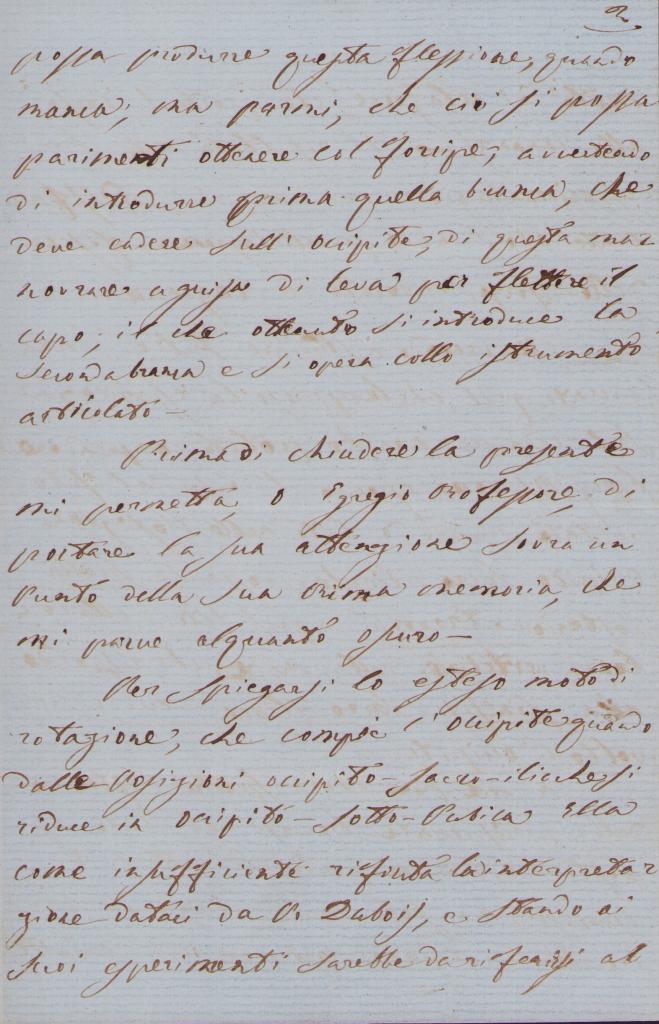 2
possa produrre questa flessione, quando
manca; ma parmi, che ciò si possa
parimenti ottenere col forcipe, avvertendo
di introdurre prima quella branca, che
deve cadere sull' occipite, di questa ma=
novrare a guisa di leva per flettere il
capo; il che ottenuto si introduce la
seconda branca e si opera collo istrumento
articolato –
Prima di chiudere la presente
mi permetta, o Egregio Professore, di
portare la sua attenzione sovra un
punto della sua prima memoria, che
mi parve alquanto oscuro –
Per spiegarsi lo esteso moto di
rotazione, che compie l' occipite quando
dalle posizioni occipito-sacro-iliache si
riduce in occipito-sotto-pubica Ella
come insufficiente rifiuta la interpreta=
zione dataci da P. Dubois, e stando ai
suoi esperimenti sarebbe da riferirsi al